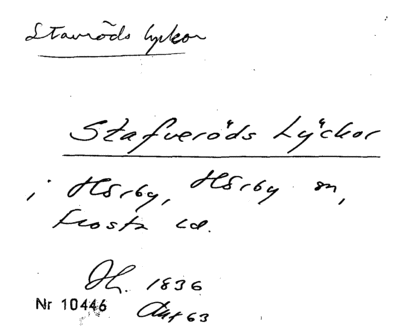 Stavröds lyckor
Stafveröds Lyckor
i Hörby, Hörby sn,
Frosta hd.
Dh. 1836
Nr 10446 Akt 63